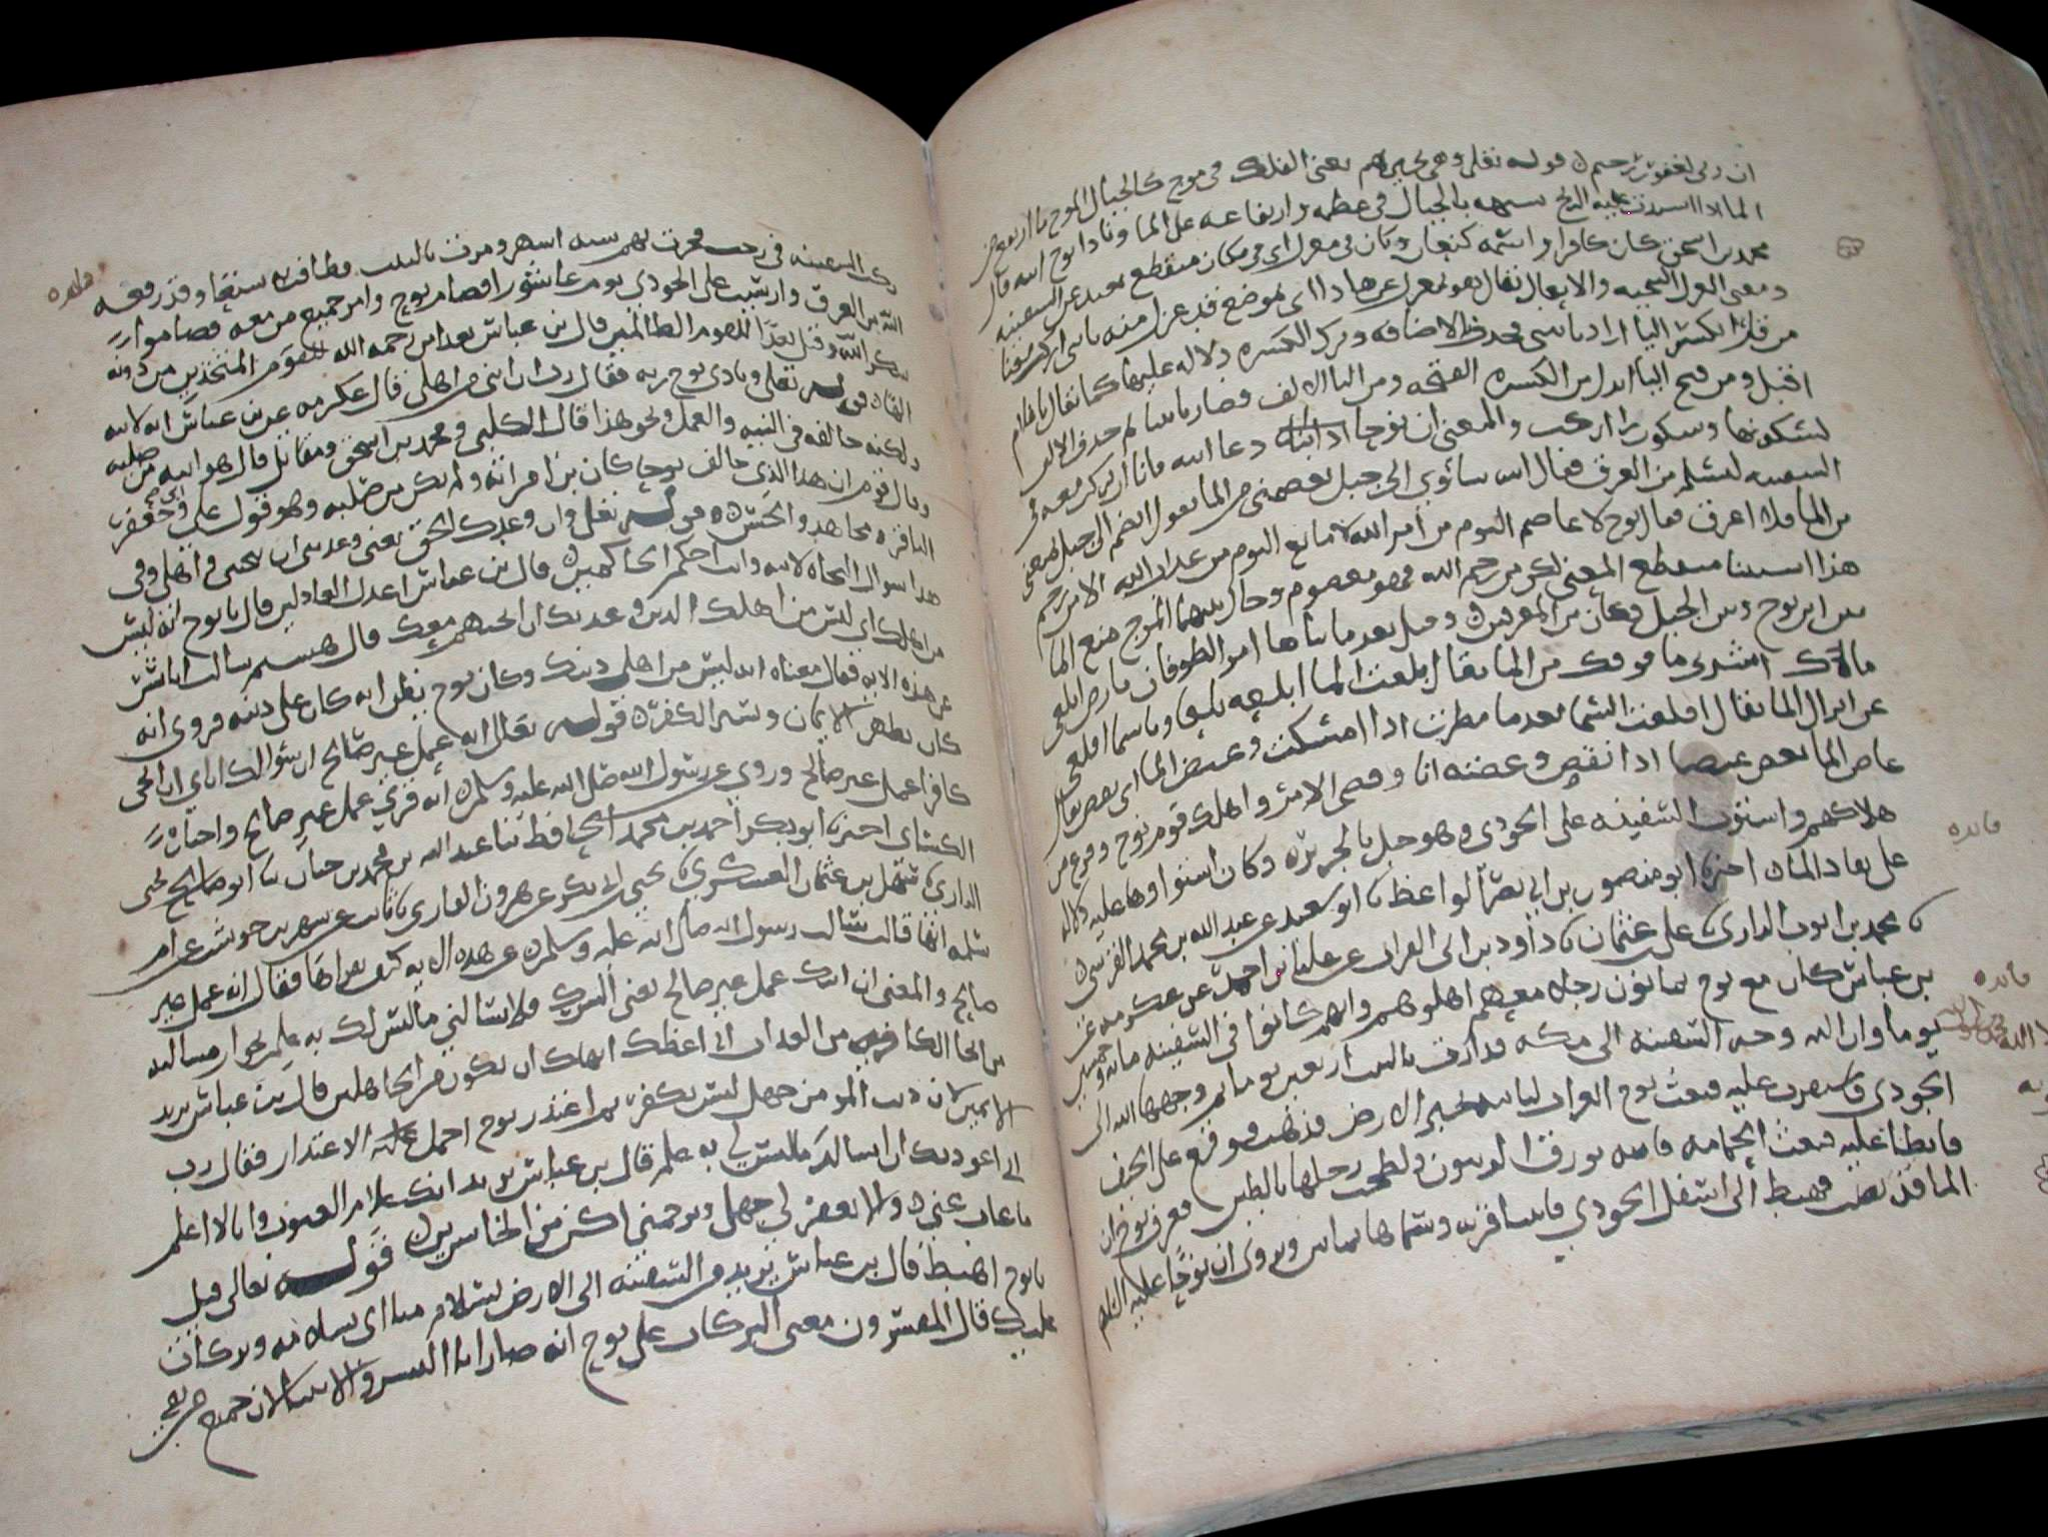 ان ربي لغفور رحيم قوله تعالى وهي تجري بهم يعني الفلك في موج كالجبال الموج ما ارتفع من
الما اذا اشتدت عليه الريح شبهه بالجبال في عظمه وارتفاعه على الما ونادا نوح ابنه قال
محمد بن اسحق كان كافرا واسمه كنعان وكان في معزل اي في مكان منقطع بعيد عن السفينه
ومعنى العزل التنحيه والابعاد يقال هو بمعزل عن هذا اي بموضع قد عزل منه يا بني اركب معنا
من قرا بكسر اليا اراد يا بني فحذف يا الاضافه وترك الكسره دلاله عليها كما يقال يا غلام
اقبل ومن فتح اليا ابدل من الكسره الفتحه ومن اليا الالف فصار يا بنيا ثم حذف الالف
لسكونها وسكون را اركب والمعنى ان نوحا دعا ابنه الى ان يركب معه في
السفينه ليسلم من الغرق فقال ابنه سآوي الى جبل يعصمني من الما يقول انضم الى جبل يمنعني
من الما فلا اغرق فقال نوح لا عاصم اليوم من امر الله لا مانع اليوم من عذاب الله الا من رحم
هذا استثنا منقطع المعنى لكن من رحم الله فهو معصوم وحال بينهما الموج منع الما
بين ابن نوح وبين الجبل فكان من المغرقين وقيل بعد ما تناها امر الطوفان يا ارض ابلعي
ماءك اشربي ما فوقك من الما يقال بلعت الما ابلعه بلعا ويا سما اقلعي
عن انزال الما يقال اقلعت السما بعد ما مطرت اذا امسكت وغيض الما اي نقص يقال
غاض الما يغيض غيضا اذا نقص وغضته انا وقضي الامر واهلك قوم نوح وفرغ من
هلاكهم واستوت السفينه على الجودي وهو جبل بالجزيره وكان استواوها عليه دلاله
على نفاد الما اخبرنا ابو منصور بن ابي نصر الواعظ نا ابو سعيد عبد الله بن محمد القرشي
نا محمد بن ايوب الرازي نا علي بن عثمان نا داود بن ابي الفرات عن علباء بن احمر عن عكرمه عن
بن عباس كان مع نوح ثمانون رجلا معهم اهلوهم وانهم كانوا في السفينه مائه وخمسين
يوما وان الله وجه السفينه الى مكه فدارت بالبيت اربعين يوما ثم وجهها الله الى
الجودي فاستقرت عليه فبعث نوح الغراب لياتيه بخبر الارض فذهب فوقع على الجيف
فابطا عليه فبعث الحمامه فاتته بورق الزيتون ولطخت رجلها بالطين فعرف نوح ان
الما قد نضب فهبط الى اسفل الجودي فابتنا قريه وسماها ثمانين ويروى ان نوحا عليه السلم
فايده
فايده
ركب السفينه في رجب فجرت بهم ستة اشهر ومرت بالبيت فطافت به سبعا وقد رفعه
الله من الغرق وارسيت على الجودي يوم عاشورا فصام نوح وامر جميع من معه فصاموا
شكرا لله وقيل بعدا للقوم الظالمين قال بن عباس بعدا من رحمه الله للقوم المتخذين من دونه
الها قوله تعالى ونادى نوح ربه فقال رب ان ابني من اهلي قال عكرمه عن بن عباس انه لابنه
ولكنه خالفه في النيه والعمل ونحو هذا قال الكلبي ومحمد بن اسحق ومقاتل قال هو ابنه من صلبه
وقال قوم ان هذا الذي خالف نوحا كان بن امراته ولم يكن من صلبه وهو قول علي وابي جعفر
الباقر ومجاهد والحسن قوله تعالى وان وعدك الحق يعني وعدتني ان تنجيني واهلي وفي
هذا سوال انجاه لابنه وانت احكم الحاكمين قال بن عباس اعدل العادلين قال يا نوح انه ليس
من اهلك اي ليس من اهلك الذين وعدتك ان انجيهم معك قال هيثم سالت ابا بشر
عن هذه الايه فقال معناه انه ليس من اهل دينك وكان نوح يظن انه كان على دينه فروى انه
كان يظهر الايمان ويسر الكفر قوله تعالى انه عمل غير صالح ان سوالك اياي ان انجي
كافرا عمل غير صالح وروي عن رسول الله صلى الله عليه وسلم انه قرى عمل غير صالح واختاره
الكسائ اخبرنا ابو بكر احمد بن محمد الحافظ نا عبد الله بن محمد بن حيان نا ابو صالح يحيى
الداري نا سهل بن عثمان العسكري نا يحيى عن هرون القاري نا ثابت عن شهر بن حوشب عن ام
سلمه انها قالت سالت رسول الله صلى الله عليه وسلم عن هذه الايه كيف نقراها فقال انه عمل غير
صالح والمعنى ان ابنك عمل غير صالح يعني الشرك فلا تسالني ما ليس لك به علم بجواز مسالته
من انجا الكافرين من العذاب اني اعظك انهاك ان تكون من الجاهلين قال بن عباس يريد
الاثمين لان ذنب المومن جهل ليس بكفر ثم اعتذر نوح اجمل الاعتذار فقال رب
اني اعوذ بك ان اسالك ما ليس لي به علم قال بن عباس يريد انك علام الغيوب وانا لا اعلم
ما غاب عني والا تغفر لي جهلي وترحمني اكن من الخاسرين قوله تعالى قيل
يا نوح اهبط قال بن عباس يريد من السفينه الى الارض بسلام منا اي بسلامه وبركات
عليك قال المفسرون معنى البركات على نوح انه صار ابا البشر والانبيا لان جميع من بقي
فايده